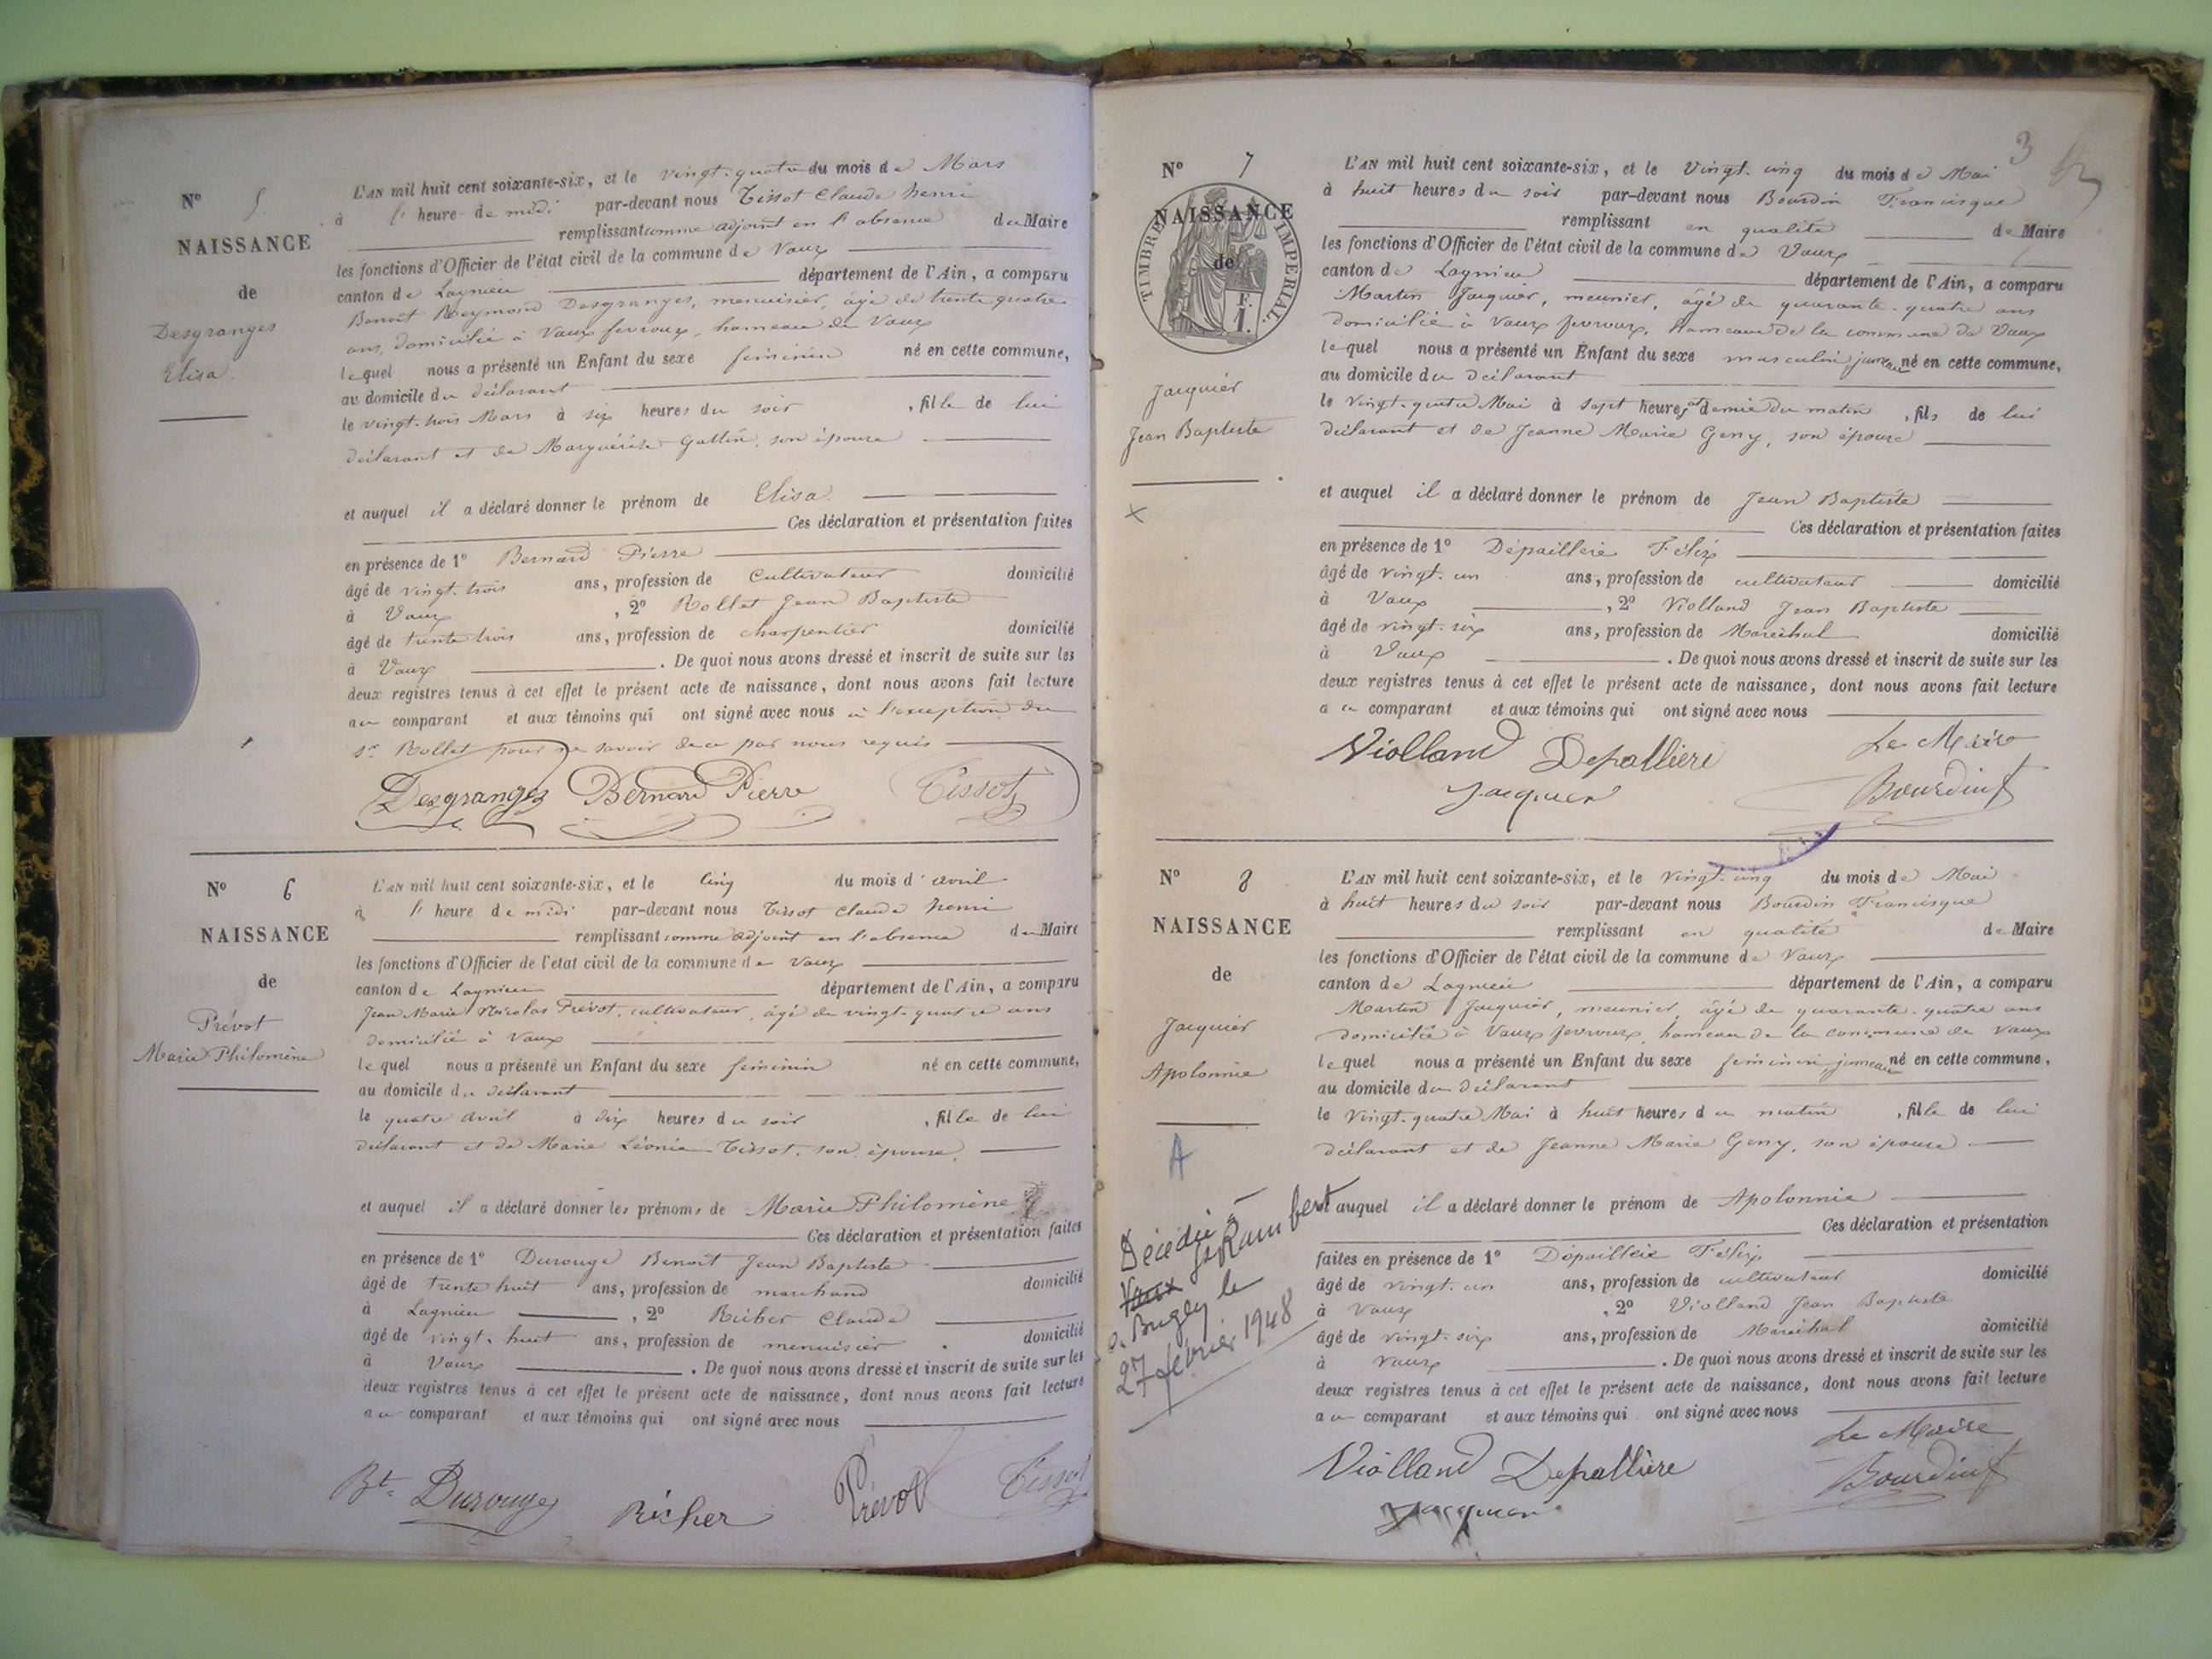 N° 5.
NAISSANCE
de
Desgranges
Elisa.
L'AN mil huit cent soixante-six, et le vingt-quatre du mois de Mars
à l' heure de midi par-devant nous Tissot Claude henri
remplissant comme adjoint en l'absence du Maire
les fonctions d'Officier de l'état civil de la commune de Vaux
canton de Lagnieu département de l'Ain, a comparu
Benoît Reymond Desgranges, menuisier, âgé de trente quatre
ans, domicilié à Vaux fevroux, hameau de Vaux
lequel nous a présenté un Enfant du sexe féminin né en cette commune,
au domicile du déclarant
le vingt-trois Mars à six heures du soir , fille de lui
déclarant et de Marguérite Gallin, son épouse
et auquel il a déclaré donner le prénom de Elisa.
Ces déclaration et présentation faites
en présence de 1° Bernard Pierre
âgé de vingt-trois ans, profession de Cultivateur domicilié
à Vaux , 2° Rollet Jean Baptiste
âgé de trente trois ans, profession de charpentier domicilié
à Vaux . De quoi nous avons dressé et inscrit de suite sur les
deux registres tenus à cet effet le présent acte de naissance, dont nous avons fait lecture
au comparant et aux témoins qui ont signé avec nous à l'exception du
sr Rollet pour ne savoir de ce par nous requis
Desgranges Bernard Pierre Tissot
N° 6
NAISSANCE
de
Prévot
Marie Philomène
L'AN mil huit cent soixante-six, et le Cinq du mois d'avril
à l' heure de midi par-devant nous Tissot Claude henri
remplissant comme adjoint en l'absence du Maire
les fonctions d'Officier de l'état civil de la commune de Vaux
canton de Lagnieu département de l'Ain, a comparu
Jean Marie Nicolas Prévot, cultivateur, âgé de vingt-quatre ans
domicilié à Vaux
lequel nous a présenté un Enfant du sexe féminin né en cette commune,
au domicile du déclarant
le quatre avril à dix heures du soir , fille de lui
déclarant et de Marie Léonie Tissot, son épouse.
et auquel il a déclaré donner les prénoms de Marie Philomène
Ces déclaration et présentation faites
en présence de 1° Durouge Benoît Jean Baptiste
âgé de trente huit ans, profession de marchand domicilié
à Lagnieu , 2° Claude
âgé de vingt-huit ans, profession de menuisier domicilié
à Vaux . De quoi nous avons dressé et inscrit de suite sur les
deux registres tenus à cet effet le présent acte de naissance, dont nous avons fait lecture
au comparant et aux témoins qui ont signé avec nous
Bt. Durouge Prévot Tissot
3
N° 7
NAISSANCE
de
TIMBRE IMPERIAL.
Jacquier
Jean Baptiste
x
L'AN mil huit cent soixante-six, et le Vingt-cinq du mois de Mai
à huit heures du soir par-devant nous Bourdin Francisque
remplissant en qualité de Maire
les fonctions d'Officier de l'état civil de la commune de Vaux
canton de Lagnieu département de l'Ain, a comparu
Martin Jacquier, meunier, âgé de quarante-quatre ans
domicilié à Vaux fevroux, hameau de la commune de Vaux
lequel nous a présenté un Enfant du sexe masculin jumeau né en cette commune,
au domicile du déclarant
le Vingt-quatre Mai à Sept heures et demie du matin , fils de lui
déclarant et de Jeanne Marie Geny, son épouse
et auquel il a déclaré donner le prénom de Jean Baptiste
Ces déclaration et présentation faites
en présence de 1° Dépaillère Félix
âgé de vingt-un ans, profession de cultivateur domicilié
à Vaux , 2° Violland Jean Baptiste
âgé de vingt-six ans, profession de Maréchal domicilié
à Vaux . De quoi nous avons dressé et inscrit de suite sur les
deux registres tenus à cet effet le présent acte de naissance, dont nous avons fait lecture
au comparant et aux témoins qui ont signé avec nous
Violland Depallière Le Maire
Jacquier Bourdin f
N° 8
NAISSANCE
de
Jacquier
Apolonnie
A
Décédée à
Vaux St Rambert
e. Bugey le
27 février 1948
L'AN mil huit cent soixante-six, et le Vingt-cinq du mois de Mai
à huit heures du soir par-devant nous Bourdin Francisque
remplissant en qualité de Maire
les fonctions d'Officier de l'état civil de la commune de Vaux
canton de Lagnieu département de l'Ain, a comparu
Martin Jacquier, meunier, âgé de quarante-quatre ans
domicilié à Vaux fevroux, hameau de la commune de Vaux
lequel nous a présenté un Enfant du sexe féminin jumeau né en cette commune,
au domicile du déclarant
le Vingt-quatre Mai à huit heures du matin , fille de lui
déclarant et de Jeanne Marie Geny, son épouse
et auquel il a déclaré donner le prénom de Apolonnie
Ces déclaration et présentation
faites en présence de 1° Dépaillère Félix
âgé de vingt-un ans, profession de cultivateur domicilié
à Vaux , 2° Violland Jean Baptiste
âgé de vingt-six ans, profession de Maréchal domicilié
à Vaux . De quoi nous avons dressé et inscrit de suite sur les
deux registres tenus à cet effet le présent acte de naissance, dont nous avons fait lecture
au comparant et aux témoins qui ont signé avec nous
Le Maire
Violland Depallière Bourdin f
Jacquier